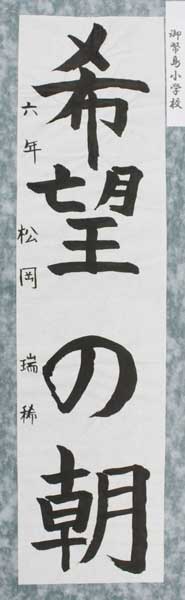 希望の朝
六年 松岡 瑞稀
御幣島小学校